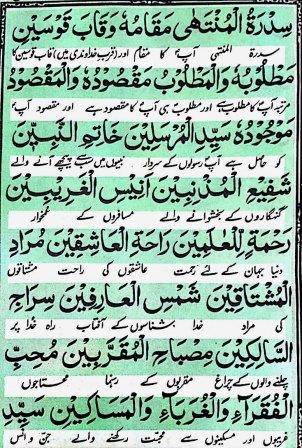 سِدْرَةُ الْمُنْتَهٰى مَقَامُهٗ وَقَابَ قَوْسَيْنِ
سدرۃ المنتہی آپؐ کا مقام اور (قرب خداوندی میں) قاب قوسین کا
مَطْلُوْبُهٗ وَالْمَطْلُوْبُ مَقْصُوْدُهٗ وَالْمَقْصُوْدُ
مرتبہ آپؐ کا مطلوب ہے اور مطلوب ہی آپؐ کا مقصود ہے اور مقصود آپؐ
مَوْجُوْدُهٗ سَيِّدِ الْمُرْسَلِيْنَ خَاتِمِ النَّبِيِّيْنَ
کو حاصل ہے آپؐ رسولوں کے سردار نبیوں میں سب سے پیچھے آنے والے
شَفِيْعِ الْمُذْنِبِيْنَ اَنِيْسِ الْغَرِيْبِيْنَ
گنہگاروں کے بخشوانے والے مسافروں کے غمخوار
رَحْمَةٍ لِّلْعٰلَمِيْنَ رَاحَةِ الْعَاشِقِيْنَ مُرَادِ
دنیا جہان کے لئے رحمت عاشقوں کی راحت مشتاقوں
الْمُشْتَاقِيْنَ شَمْسِ الْعَارِفِيْنَ سِرَاجِ
کی مراد خدا شناسوں کے آفتاب راہ خدا پر
السَّالِكِيْنَ مِصْبَاحِ الْمُقَرَّبِيْنَ مُحِبِّ
چلنے والوں کے چراغ مقربوں کے رہنما محتاجوں
الْفُقَرَآءِ وَالْغُرَبَآءِ وَالْمَسَاكِيْنَ سَيِّدِ
غریبوں اور مسکینوں سے محبت رکھنے والے جن و انس